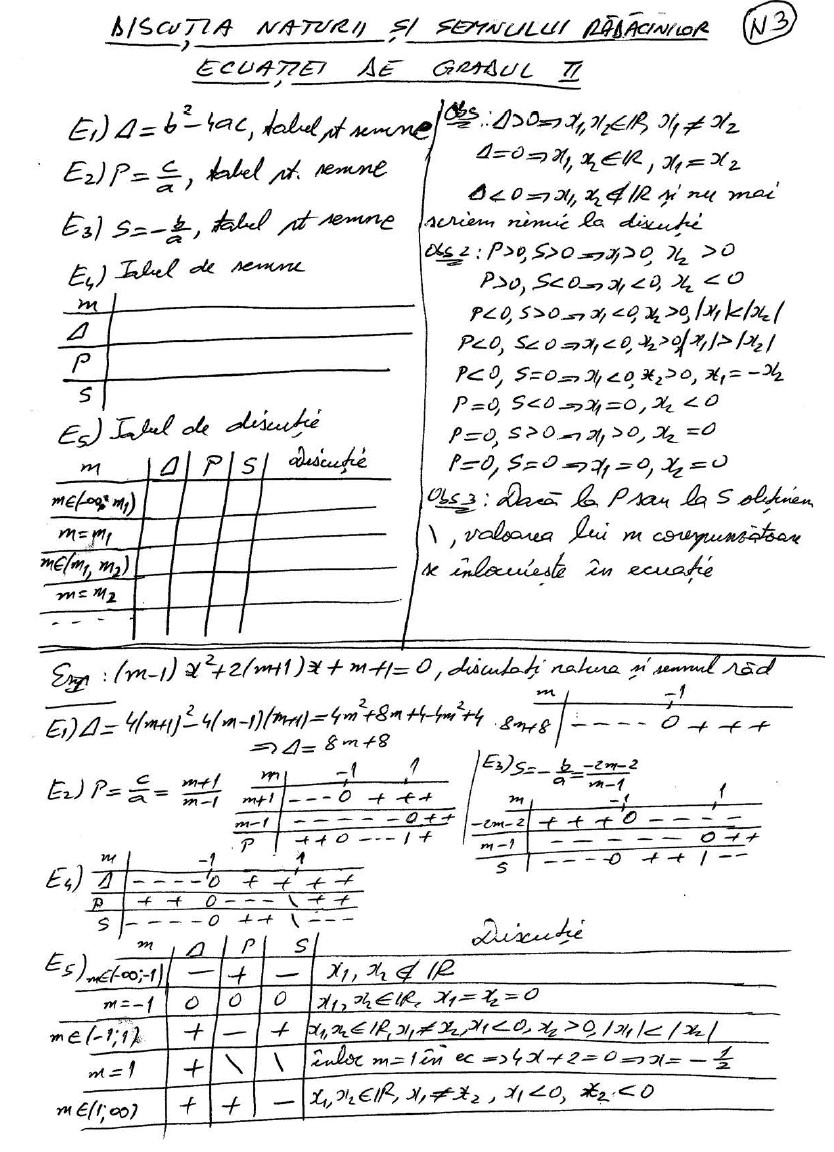 DISCUȚIA NATURII ȘI SEMNULUI RĂDĂCINILOR N3
ECUAȚIEI DE GRADUL II
E1) Δ = b² - 4ac, tabel pt semne
E2) P = c/a, tabel pt. semne
E3) S = -b/a, tabel pt semne
E4) Tabel de semne
m
Δ
P
S
E5) Tabel de discuție
m | Δ | P | S | Discuție
m∈(-∞; m1)
m = m1
m∈(m1, m2)
m = m2
- - - -
Obs: Δ>0 ⇒ x1, x2 ∈ IR, x1 ≠ x2
Δ=0 ⇒ x1, x2 ∈ IR, x1 = x2
Δ<0 ⇒ x1, x2 ∉ IR și nu mai
scriem nimic la discuție
Obs 2: P>0, S>0 ⇒ x1>0, x2 >0
P>0, S<0 ⇒ x1<0, x2 <0
P<0, S>0 ⇒ x1<0, x2>0, |x1|<|x2|
P<0, S<0 ⇒ x1<0, x2>0, |x1|>|x2|
P<0, S=0 ⇒ x1<0, x2>0, x1 = -x2
P=0, S<0 ⇒ x1=0, x2 <0
P=0, S>0 ⇒ x1>0, x2 =0
P=0, S=0 ⇒ x1=0, x2=0
Obs 3: Dacă la P sau la S obținem
\, valoarea lui m corespunzătoare
se înlocuiește în ecuație
Exp: (m-1) x² + 2(m+1)x + m+1 = 0, discutați natura și semnul răd
E1) Δ = 4(m+1)² - 4(m-1)(m+1) = 4m² + 8m + 4 - 4m² + 4
⇒ Δ = 8m+8
m | -1
8m+8 | - - - - 0 + + +
E2) P = c/a = m+1/m-1
m | -1 1
m+1 | - - - 0 + + +
m-1 | - - - - - - 0 + +
P | + + 0 - - - | +
E3) S = -b/a = -2m-2/m-1
m | -1 1
-2m-2 | + + + 0 - - - -
m-1 | - - - - - - 0 + +
S | - - - - 0 + + | - -
E4)
m | -1 1
Δ | - - - - 0 + + + +
P | + + 0 - - - \ + +
S | - - - - 0 + + \ - - -
E5)
m | Δ | P | S | Discuție
m∈(-∞;-1) | - | + | - | x1, x2 ∉ IR
m=-1 | 0 | 0 | 0 | x1, x2 ∈ IR, x1 = x2 = 0
m∈(-1;1) | + | - | + | x1, x2 ∈ IR, x1 ≠ x2, x1<0, x2>0, |x1| < |x2|
m=1 | + | \ | \ | înloc m=1 în ec ⇒ 4x+2=0 ⇒ x = -1/2
m∈(1;∞) | + | + | - | x1, x2 ∈ IR, x1 ≠ x2, x1<0, x2<0